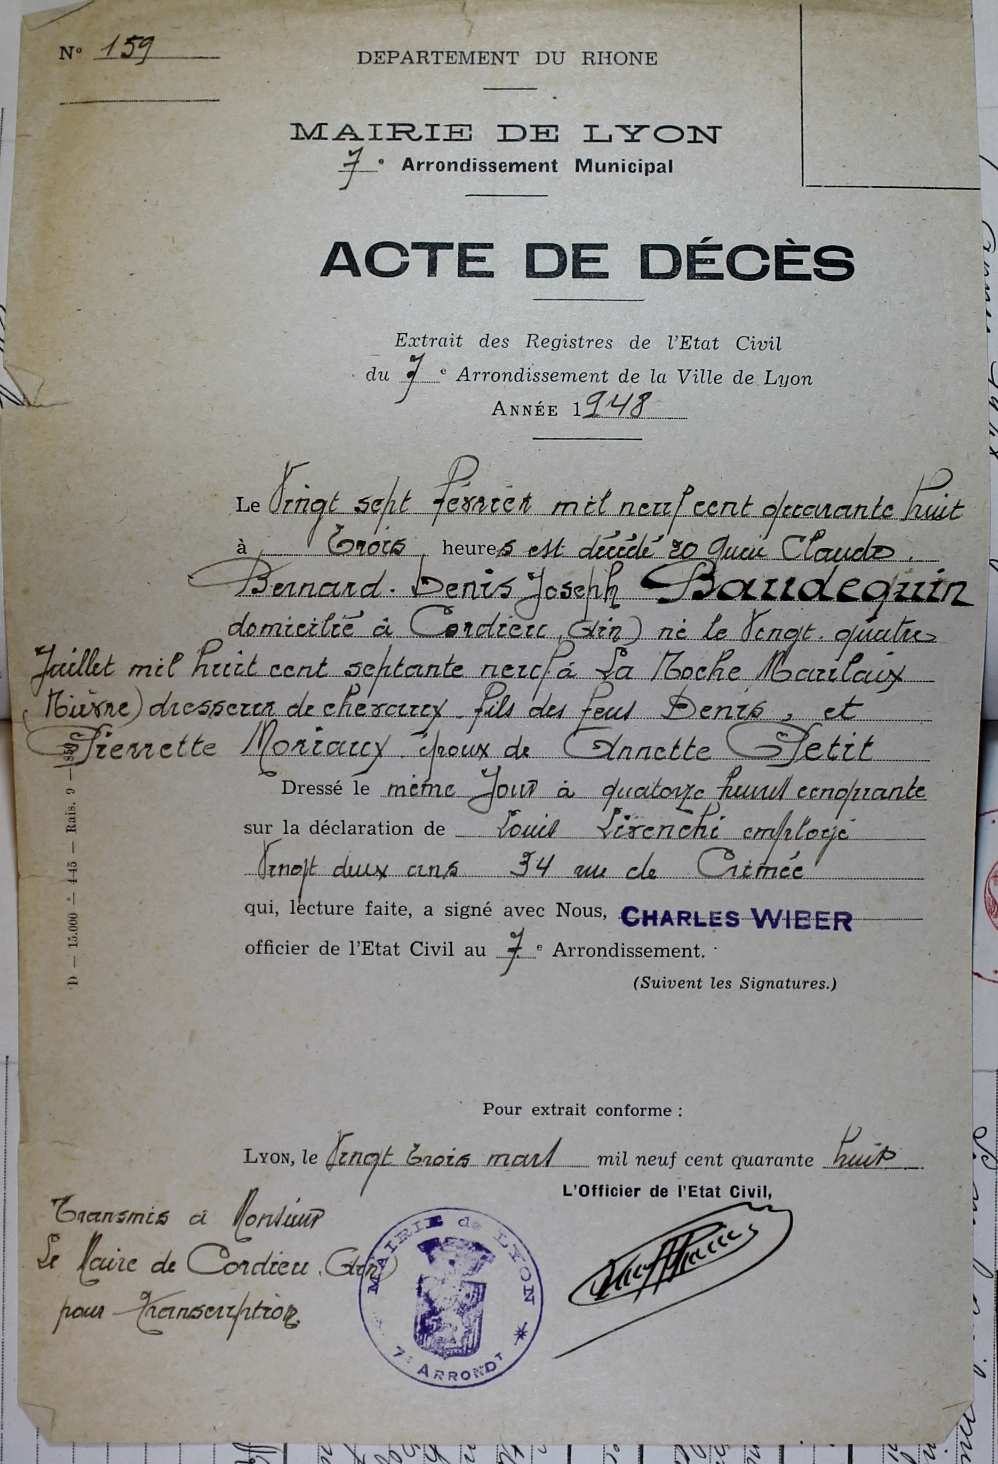 N° 159
DEPARTEMENT DU RHONE
MAIRIE DE LYON
7e Arrondissement Municipal
ACTE DE DÉCÈS
Extrait des Registres de l'Etat Civil
du 7e Arrondissement de la Ville de Lyon
ANNÉE 1948
Le Vingt sept février mil neuf cent quarante huit
à Trois heures est décédé 20 quai Claude
Bernard. Denis Joseph Baudequin
domicilié à Cordieu (Ain) né le Vingt quatre
Juillet mil huit cent septante neuf à La Roche Maulaix
(Nièvre) dresseur de chevaux fils des feus Denis, et
Pierrette Moriaux époux de Annette Petit
Dressé le même Jour à quatorze heures cinquante
sur la déclaration de Louis employé
Vingt deux ans 34 rue de Crimée
qui, lecture faite, a signé avec Nous, CHARLES WIBER
officier de l'Etat Civil au 7e Arrondissement.
(Suivent les Signatures.)
Pour extrait conforme :
LYON, le Vingt trois mars mil neuf cent quarante huit
L'Officier de l'Etat Civil,
Transmis à Monsieur
Le Maire de Cordieu (Ain)
pour Transcription
MAIRIE de LYON
7e ARRONDT
D — 15.000 — 4-45 — Rais. 9